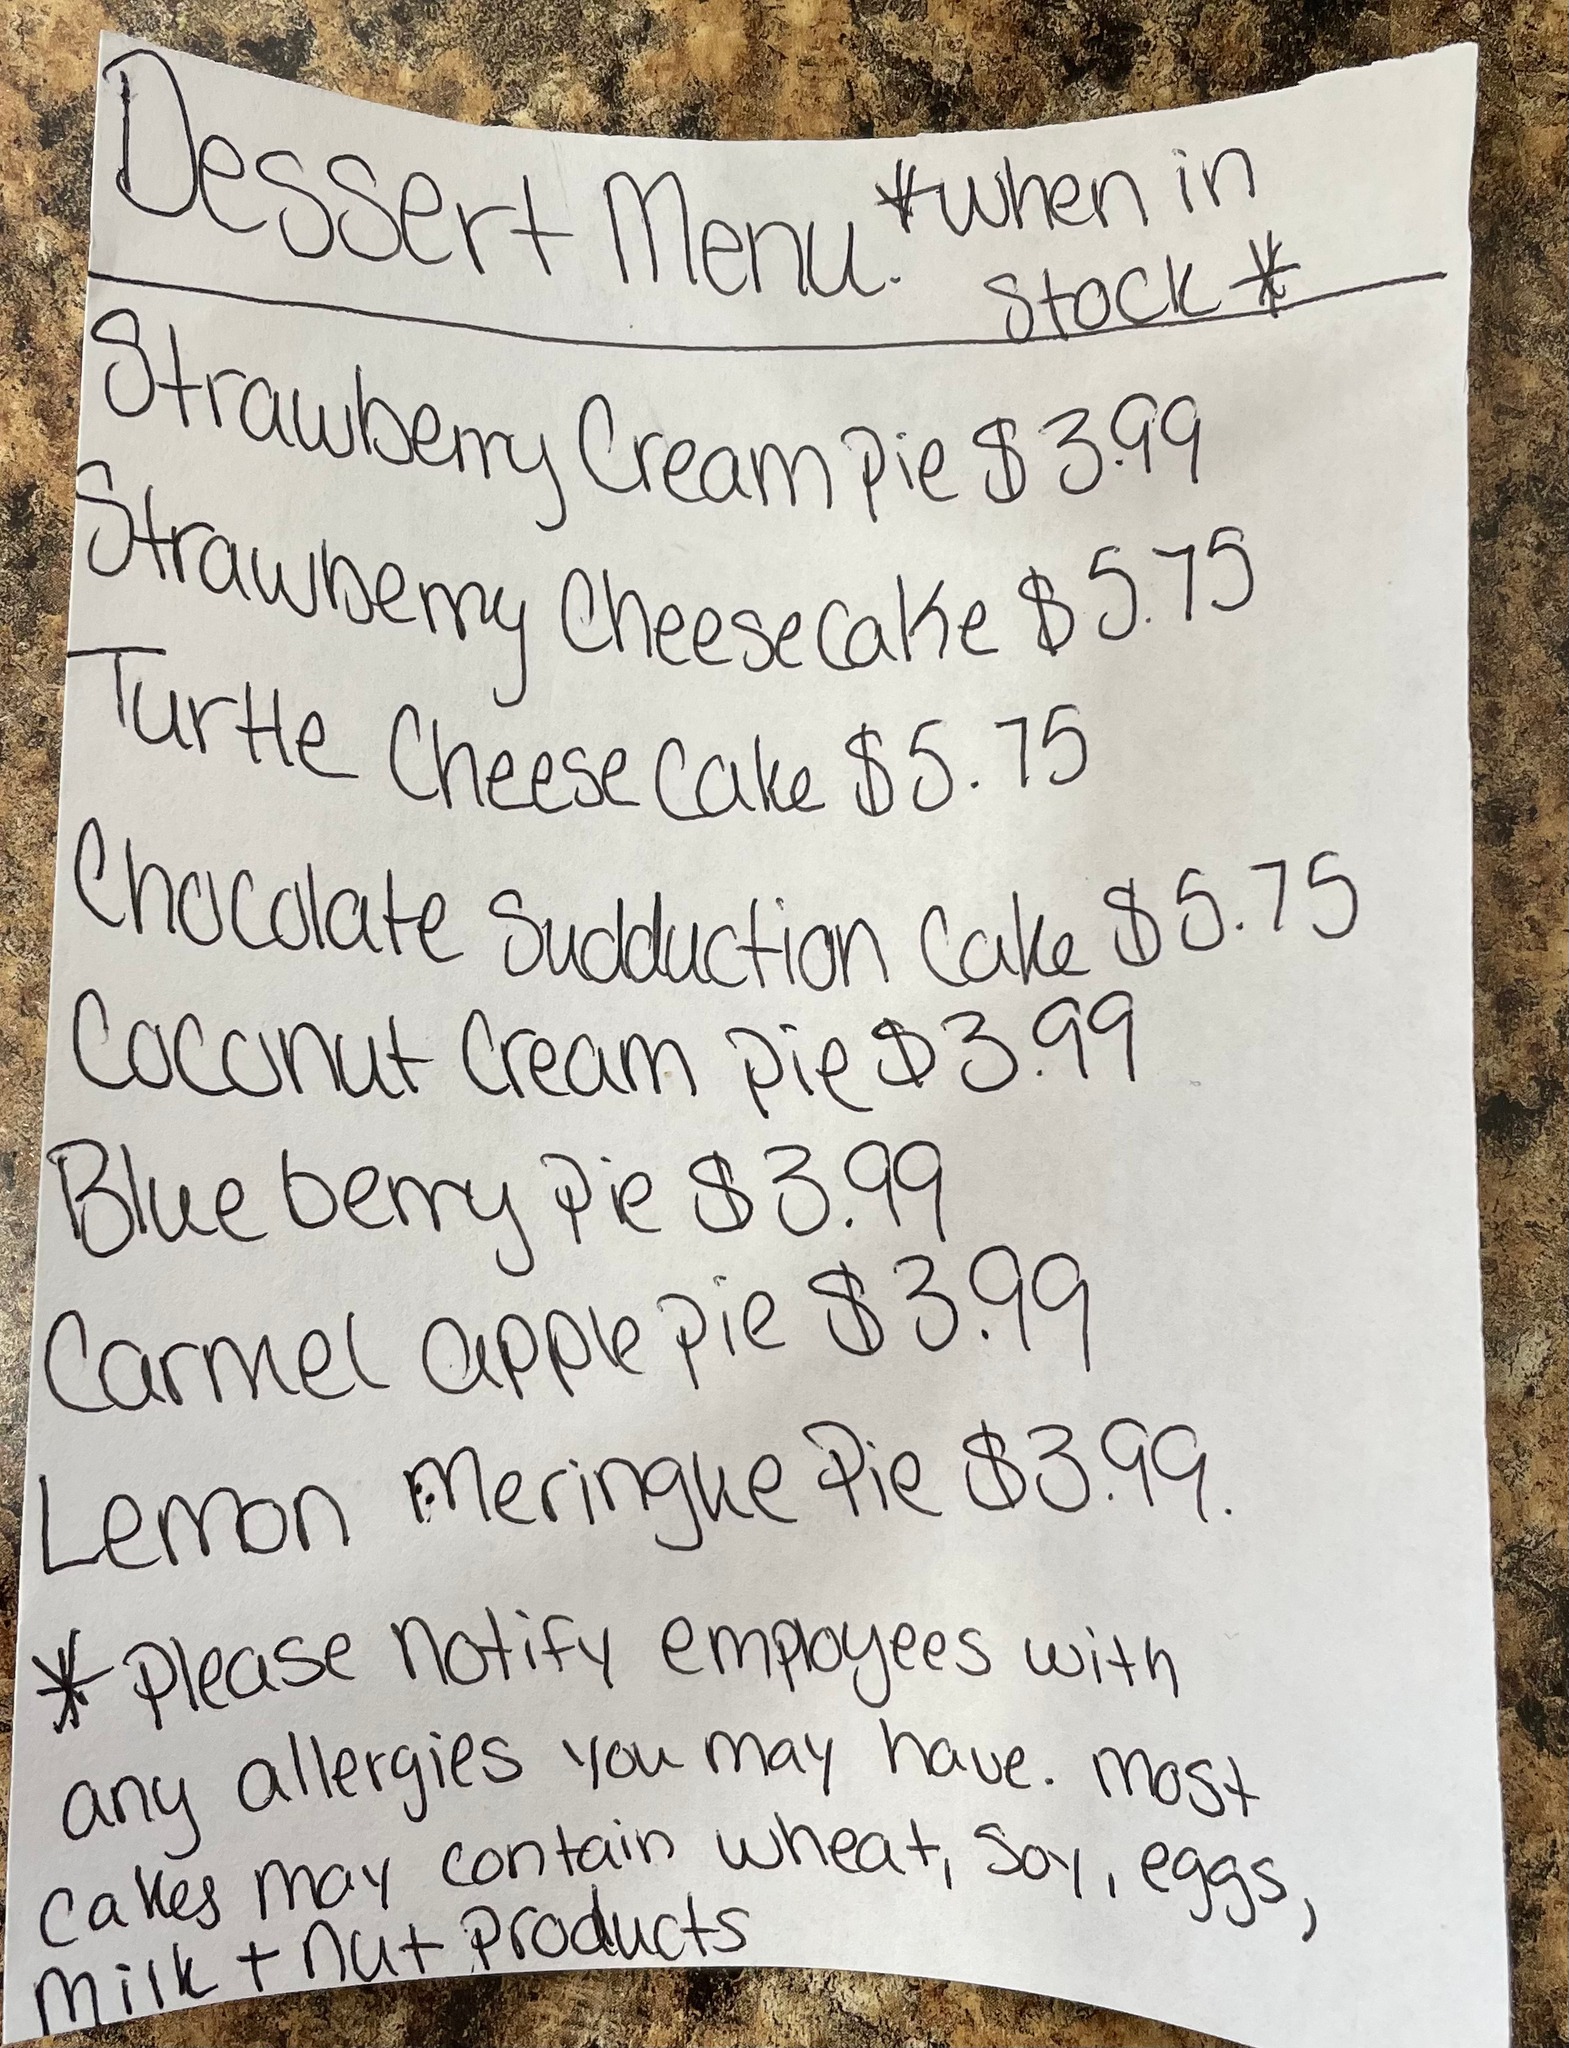 Dessert Menu. *when in
stock*
Strawberry Cream pie $3.99
Strawberry Cheesecake $5.75
Turtle Cheese Cake $5.75
Chocolate Sudduction Cake $5.75
Coconut Cream pie $3.99
Blue berry Pie $3.99
Carmel apple pie $3.99
Lemon Meringue Pie $3.99.
* please notify employees with
any allergies you may have. most
cakes may contain wheat, soy, eggs,
milk + nut products